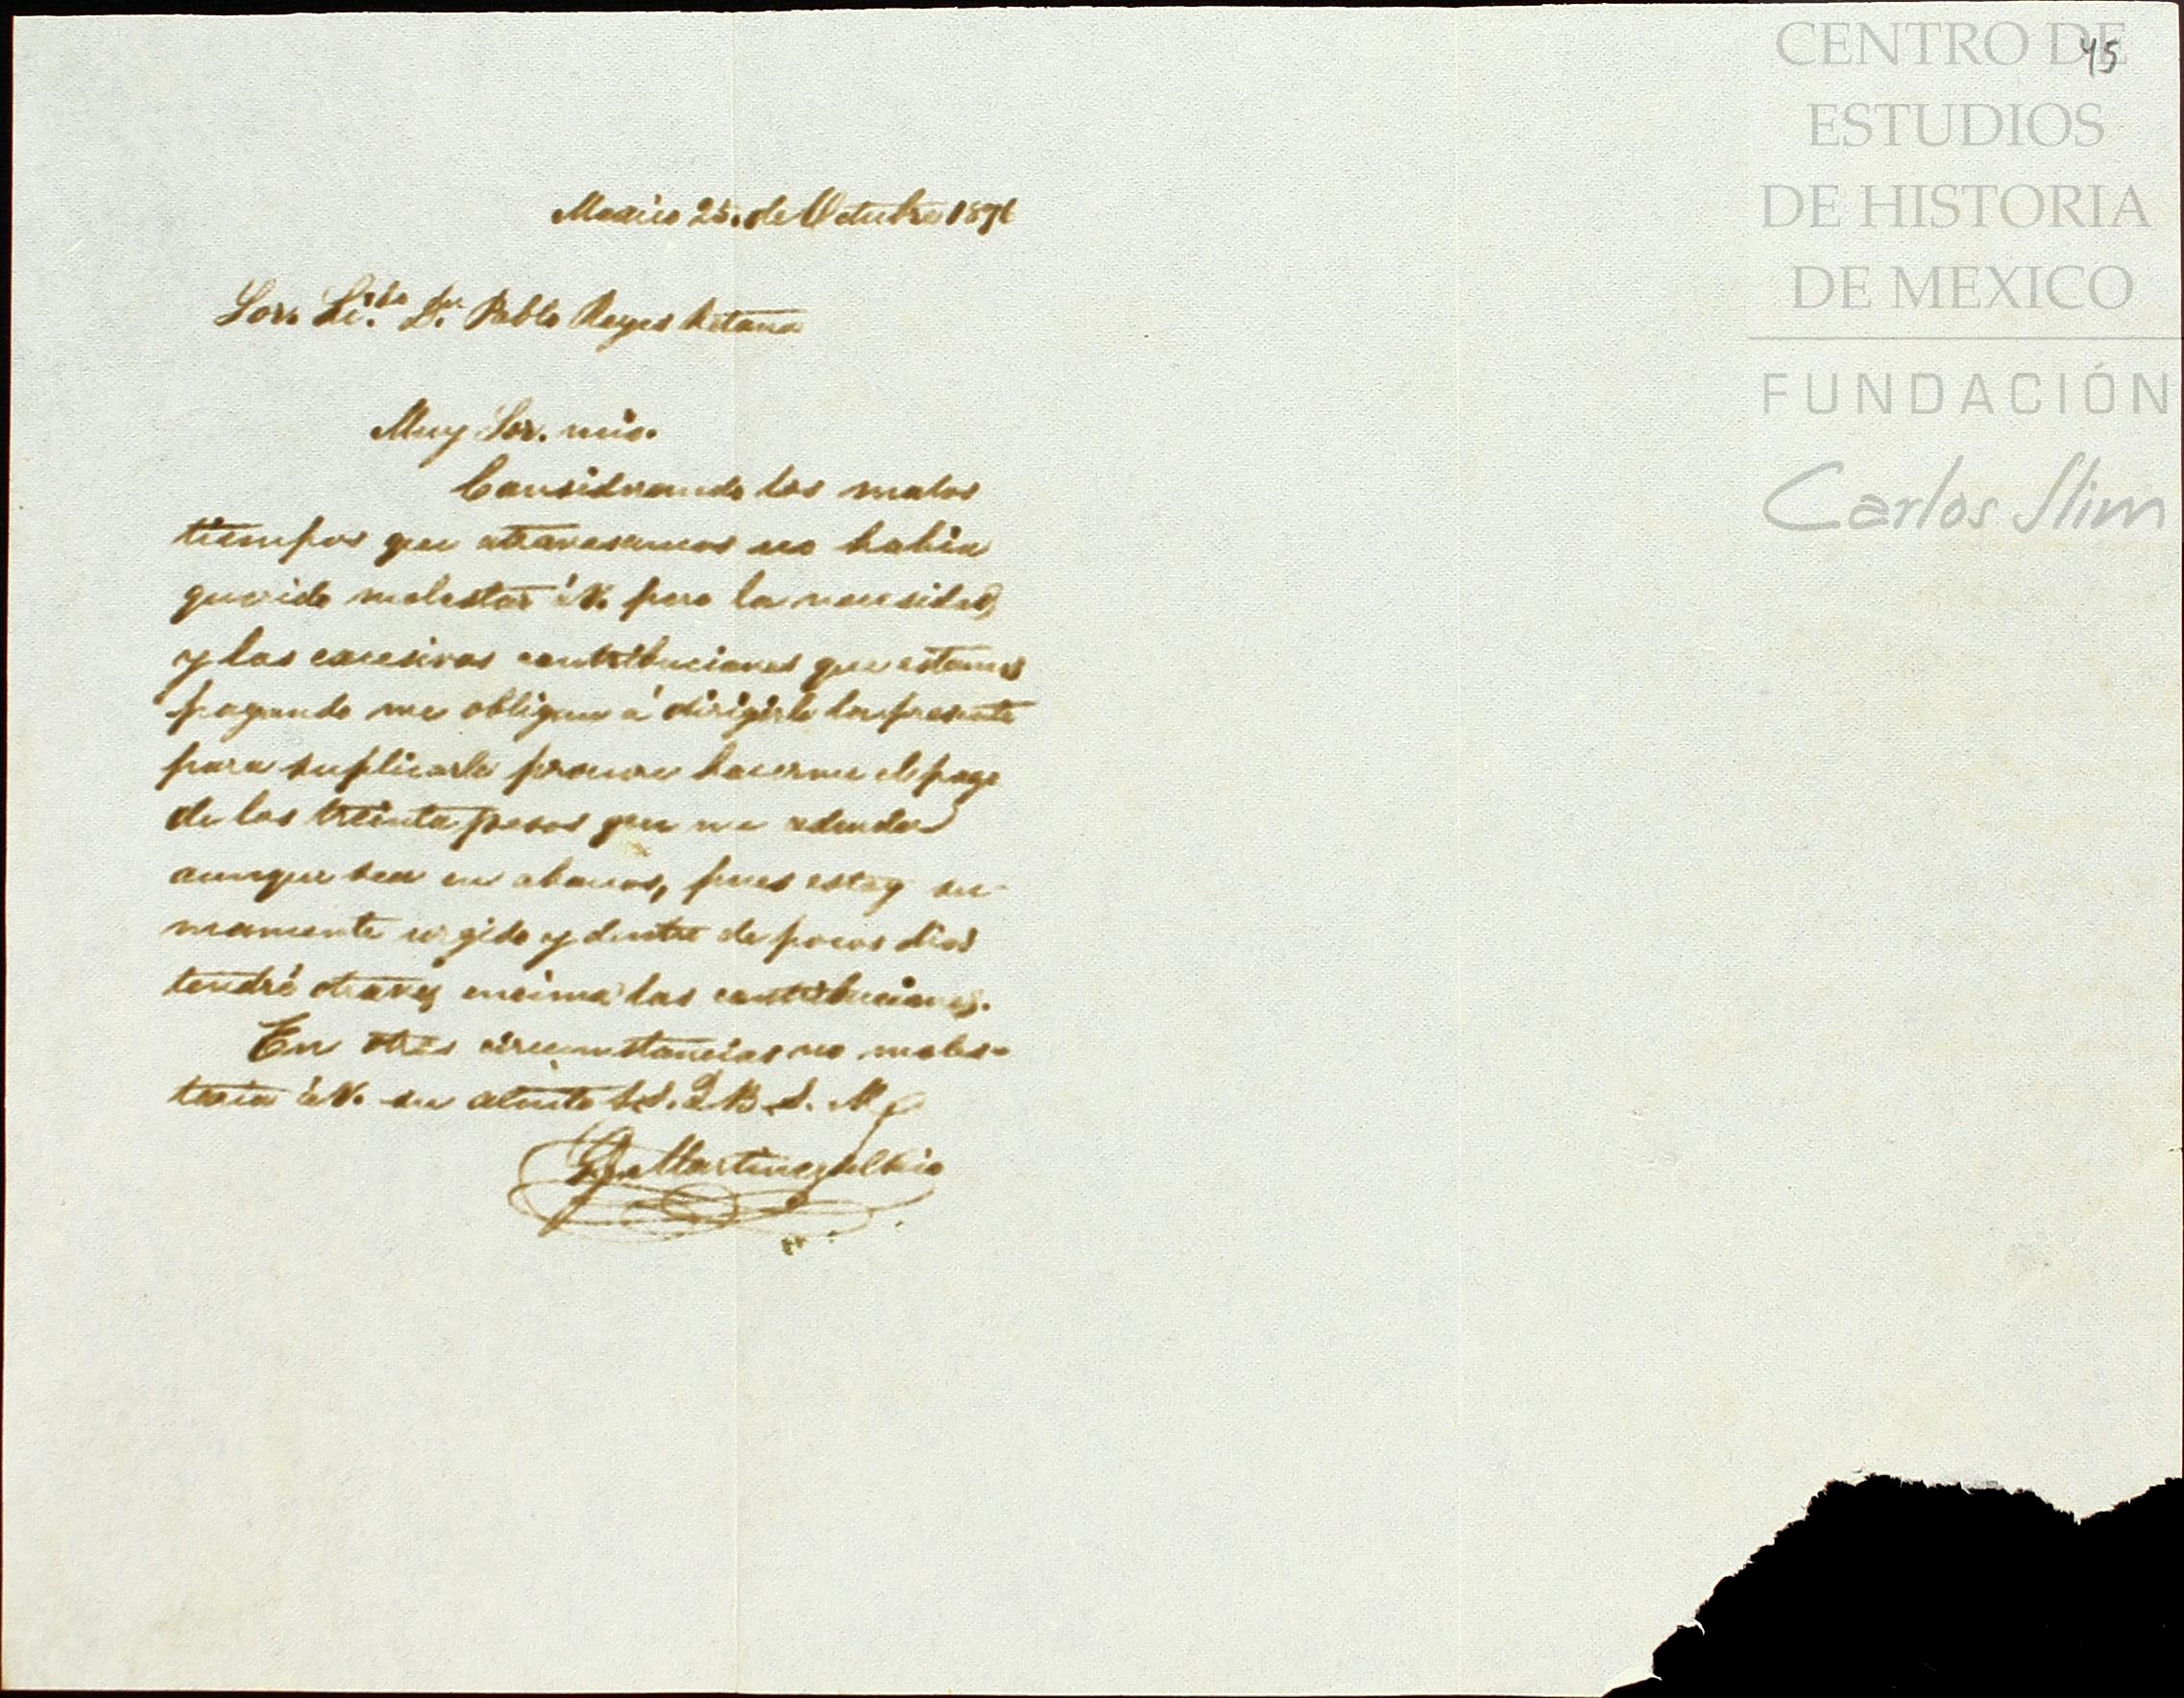 45
CENTRO DE
ESTUDIOS
DE HISTORIA
DE MEXICO
FUNDACIÓN
Carlos Slim
Mexico 25. de Octubre 1876
Sor. Lic.do Dn. Pablo Reyes Retana
Muy Sor. mio.
Considerando los malos
tiempos que atravesamos no habia
querido molestar á V. pero la necesidad
y las excesivas contribuciones que estamos
pagando me obligan á dirigirle la presente
para suplicarle procure hacerme el pago
de los treinta pesos que me adeuda
aunque sea en abonos, pues estoy su-
mamente urgido y dentro de pocos dias
tendré otravez encima las contribuciones.
En otras circunstancias no moles-
taria á V. su atento S.S. Q. B. S. M.
Martinez del Rio